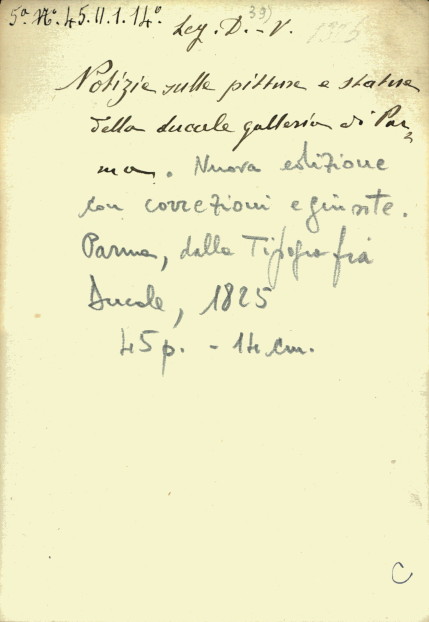 5ª Nº. 45. II. 1. 14º.
39)
Leg. D. - V.
Notizie sulle pitture e statue
della ducale galleria di Par=
ma. Nuova edizione
con correzioni e giunte.
Parma, dalla Tipografia
Ducale, 1825
45 p. - 14 cm.
C